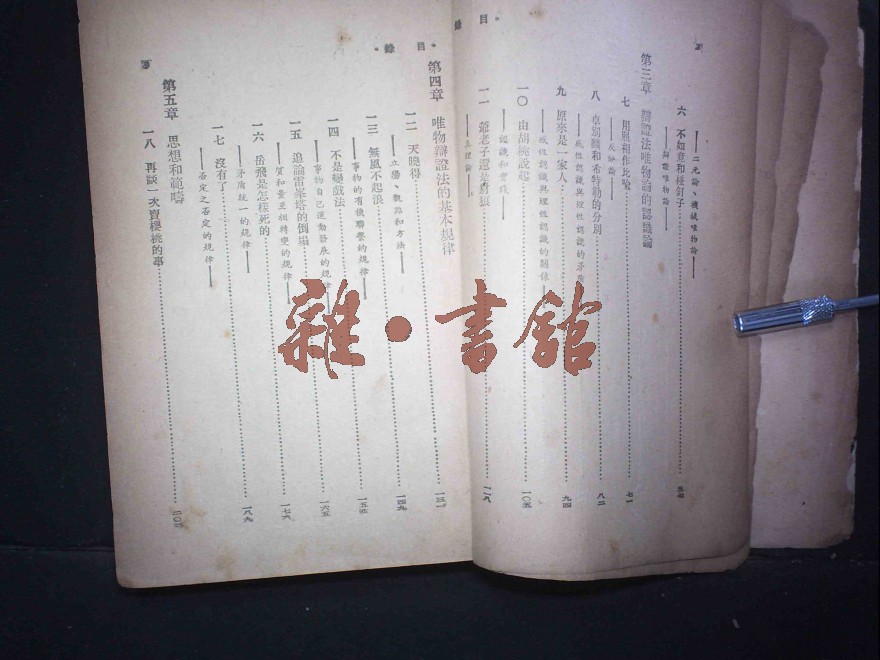 目 錄
——二元論、機械唯物論——
六 不如意和碰釘子……
——辯證唯物論——
第三章 辯證法唯物論的認識論
七 用照相作比喻……七一
——反映論——
八 卓別麟和希特勒的分別……八二
——感性認識與理性認識的矛盾
九 原來是一家人……九四
——感性認識與理性認識的關係
一〇 由胡桃說起……一〇五
——認識和實踐——
一一 爺老子還是豺狼……一一八
——真理論——
目 錄
第四章 唯物辯證法的基本規律
一二 天曉得……一三一
——立場、觀點和方法——
一三 無風不起浪……一四九
——事物的有機聯繫的規律——
一四 不是變戲法……
——事物自己運動發展的規律
一五 追論雷峯塔的倒塌……一六五
——質和量互相轉變的規律——
一六 岳飛是怎樣死的……一七六
——矛盾統一的規律——
一七 沒有了……一八九
——否定之否定的規律——
第五章 思想和範疇
一八 再談一次賣櫻桃的事……
雜·書館